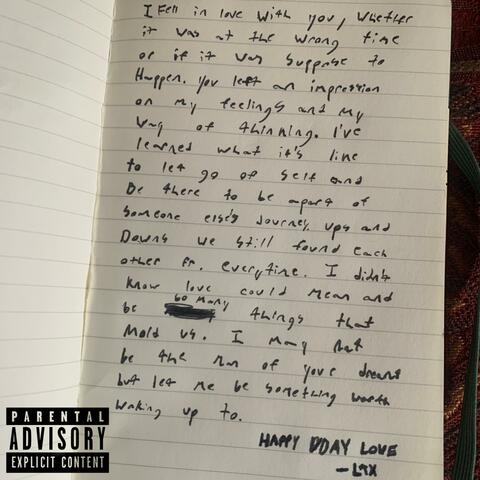 I Fell in love with you, whether
it was at the wrong time
or if it was suppose to
Happen. You left an impression
on my feelings and my
way of thinking. I've
learned what it's like
to let go of self and
be there to be apart of
someone else's journey, ups and
Downs we still found each
other fr. everytime. I didn't
know love could mean and
be so many things that
mold us. I may not
be the man of your dreams
but let me be something worth
waking up to.
HAPPY DDAY LOVE
- LTX
PARENTAL
ADVISORY
EXPLICIT CONTENT